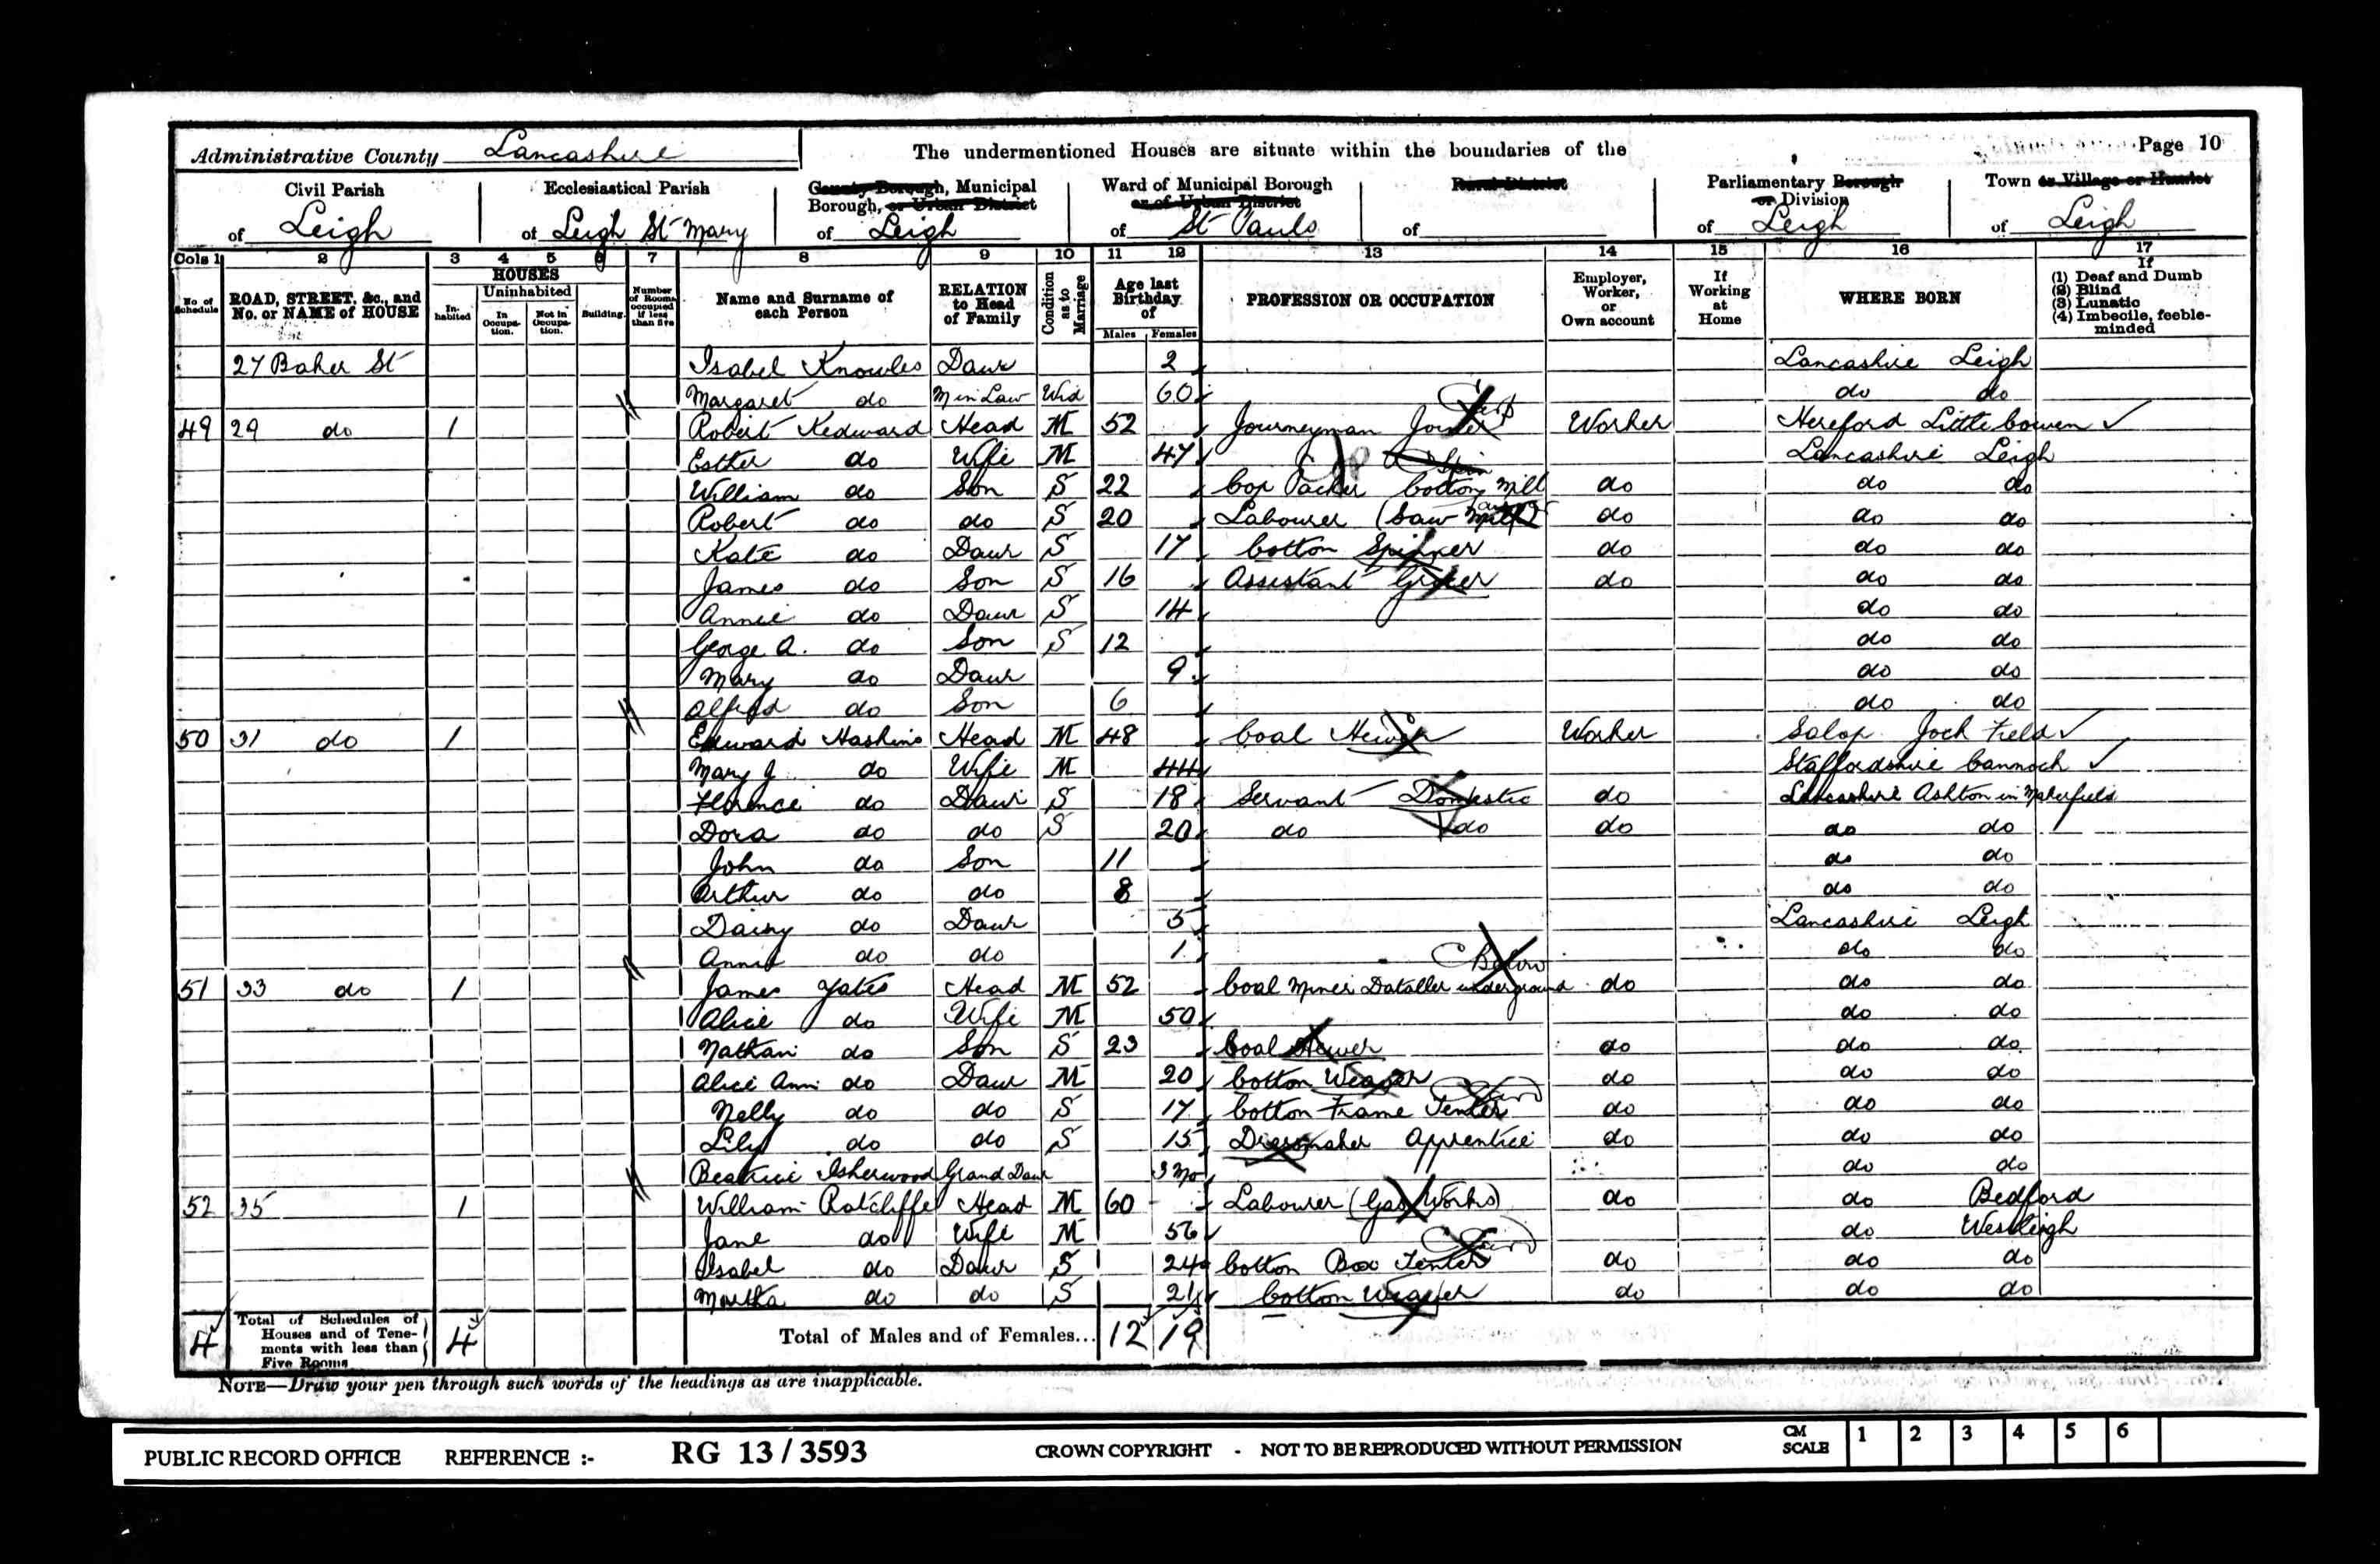 Administrative County Lancashire The undermentioned Houses are situate within the boundaries of the Page 10
Civil Parish of Leigh
Ecclesiastical Parish of Leigh St Mary
County Borough, Municipal Borough, or Urban District of Leigh
Ward of Municipal Borough or of Urban District of St Pauls
Rural District of
Parliamentary Borough or Division of Leigh
Town or Village or Hamlet of Leigh
Cols 1 2 3 4 5 6 7 8 9 10 11 12 13 14 15 16 17
No of Schedule
ROAD, STREET, &c., and No. or NAME of HOUSE
HOUSES
Inhabited
Uninhabited
In Occupation.
Not in Occupation.
Building.
Number of Rooms occupied if less than five
Name and Surname of each Person
RELATION to Head of Family
Condition as to Marriage
Age last Birthday of
Males Females
PROFESSION OR OCCUPATION
Employer, Worker, or Own account
If Working at Home
WHERE BORN
If
(1) Deaf and Dumb
(2) Blind
(3) Lunatic
(4) Imbecile, feeble-minded
27 Baker St Isabel Knowles Daur 2 Lancashire Leigh
Margaret do M in Law Wid 60 do do
49 29 do 1 Robert Kedward Head M 52 Journeyman Joiner Worker Hereford Little
Esther do Wife M 47 Lancashire Leigh
William do Son S 22 Cop Packer Cotton Mill do do do
Robert do do S 20 Labourer (Saw Mill) do do do
Kate do Daur S 17 Cotton Spinner do do do
James do Son S 16 Assistant Grocer do do do
Annie do Daur S 14 do do
George A. do Son S 12 do do
Mary do Daur 9 do do
Alfred do Son 6 do do
50 31 do 1 Edward Haskins Head M 48 Coal Hewer Worker Salop Jock Field
Mary J do Wife M 44 Staffordshire Cannock
Florence do Daur S 18 Servant Domestic do Lancashire Ashton in Makerfield
Dora do do S 20 do do do do do
John do Son 11 do do
Arthur do do 8 do do
Daisy do Daur 5 Lancashire Leigh
Annie do do 1 do do
Below
51 33 do 1 James Yates Head M 52 Coal Miner Dataller underground do do do
Alice do Wife M 50 do do
Nathan do Son S 23 Coal Hewer do do do
Alice Ann do Daur M 20 Cotton Weaver do do do
Nelly do do S 17 Cotton Frame Tenter do do do
Lily do do S 15 Dressmaker Apprentice do do do
Beatrice Isherwood Grand Daur 3 Mo do do
52 35 1 William Ratcliffe Head M 60 Labourer (Gas Works) do do Bedford
Jane do Wife M 56 do Westleigh
Isabel do Daur S 24 Cotton Box Tenter do do do
Martha do do S 21 Cotton Weaver do do do
4 Total of Schedules of Houses and of Tenements with less than Five Rooms 4 Total of Males and of Females... 12 19
NOTE—Draw your pen through such words of the headings as are inapplicable.
PUBLIC RECORD OFFICE REFERENCE :- RG 13 / 3593 CROWN COPYRIGHT - NOT TO BE REPRODUCED WITHOUT PERMISSION CM SCALE 1 2 3 4 5 6